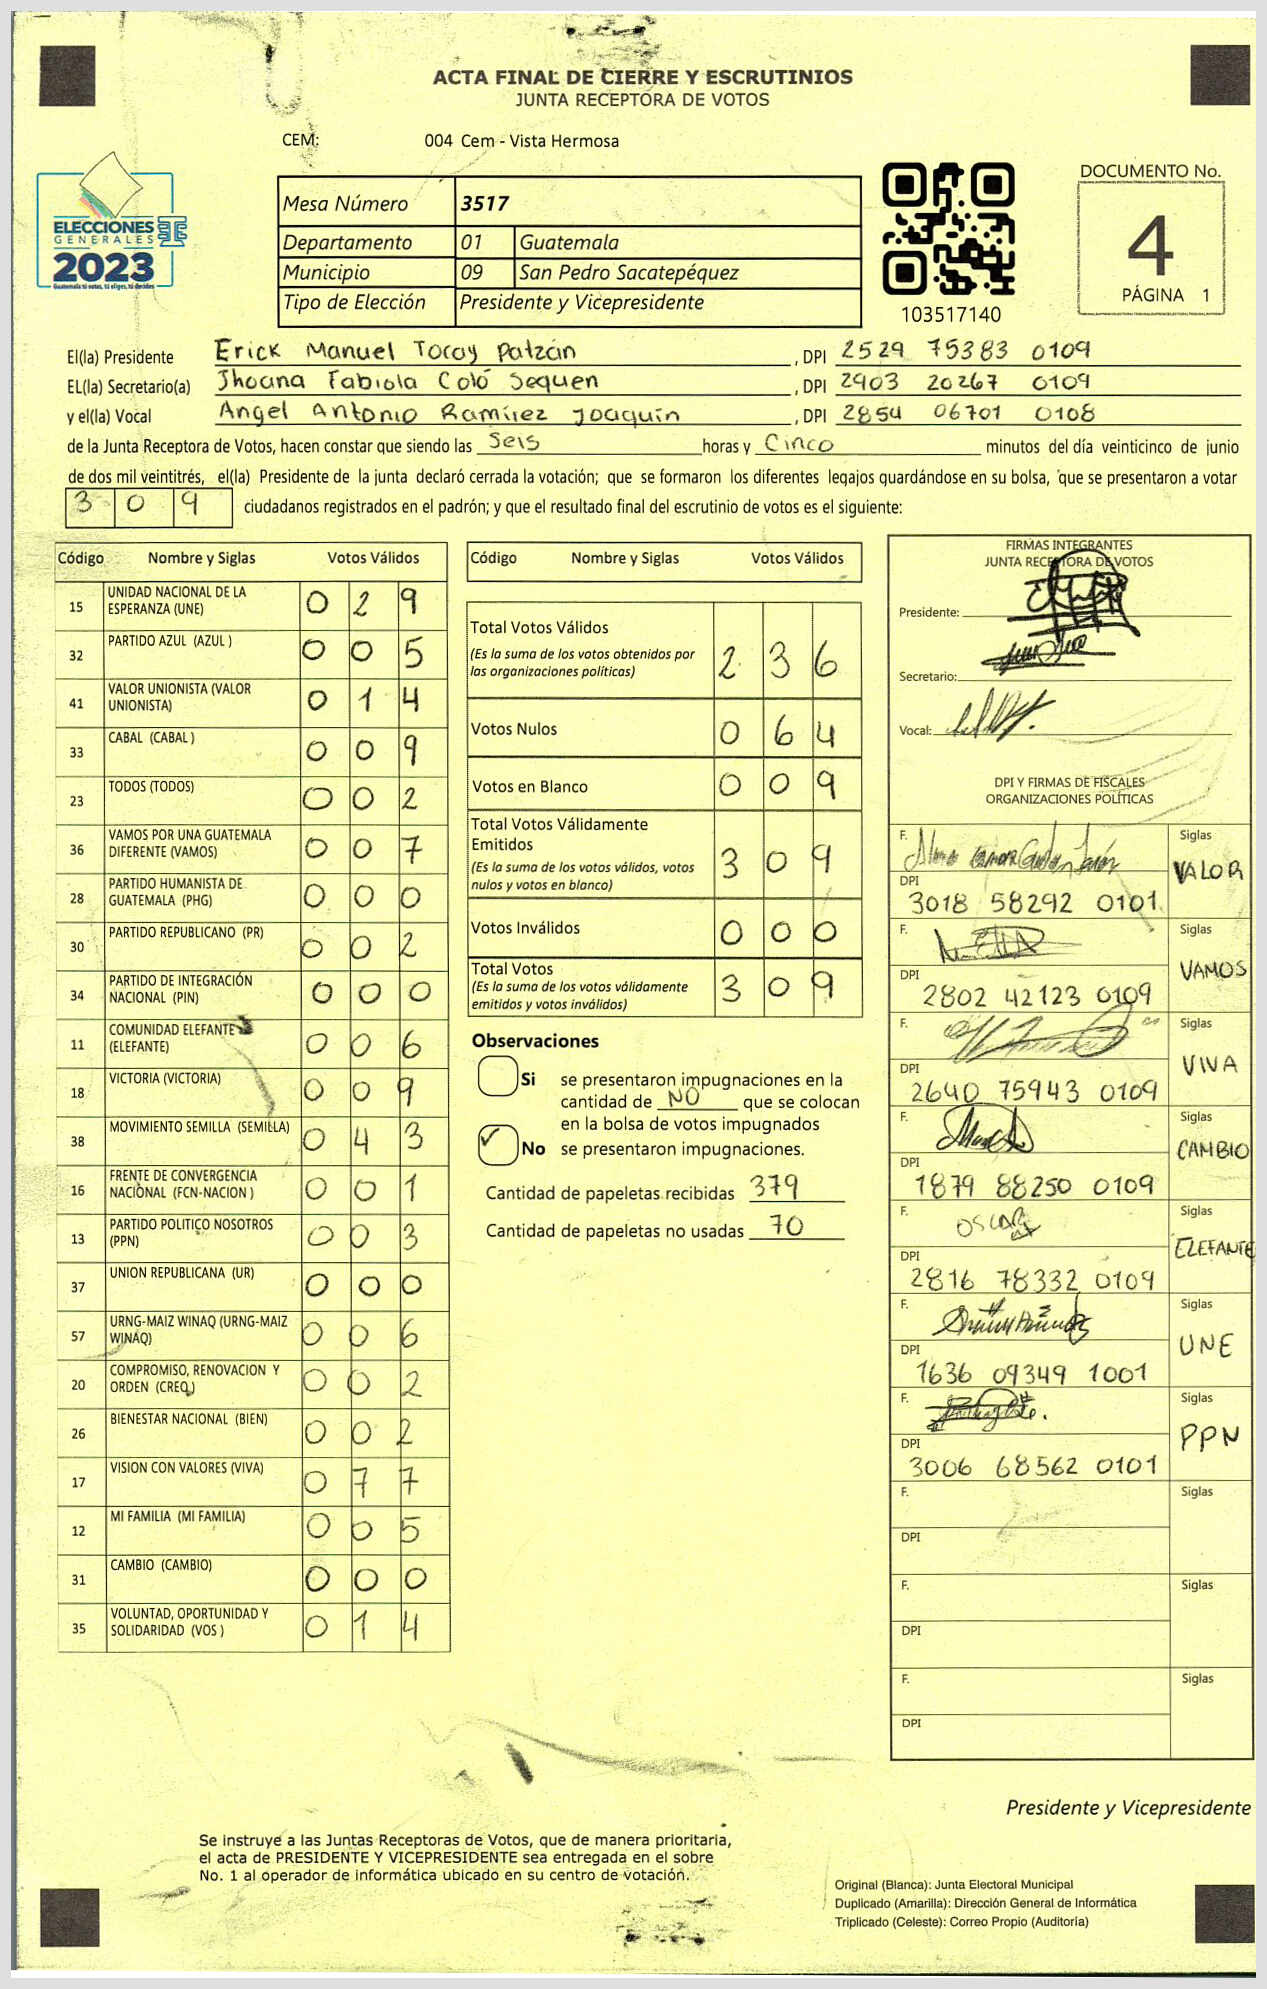 ACTA FINAL DE CIERRE Y ESCRUTINIOS
JUNTA RECEPTORA DE VOTOS
CEM: 004 Cem - Vista Hermosa
ELECCIONES
GENERALES
2023
Guatemala tú votas, tú eliges, tú decides
Mesa Número 3517
Departamento 01 Guatemala
Municipio 09 San Pedro Sacatepéquez
Tipo de Elección Presidente y Vicepresidente
103517140
DOCUMENTO No.
4
PÁGINA 1
El(la) Presidente Erick Manuel Tocay Patzán , DPI 2529 75383 0109
EL(la) Secretario(a) Jhoana Fabiola Coló Sequen , DPI 2903 20267 0109
y el(la) Vocal Angel Antonio Ramírez Joaquín , DPI 2854 06701 0108
de la Junta Receptora de Votos, hacen constar que siendo las Seis horas y Cinco minutos del día veinticinco de junio
de dos mil veintitrés, el(la) Presidente de la junta declaró cerrada la votación; que se formaron los diferentes legajos guardándose en su bolsa, que se presentaron a votar
3 0 9 ciudadanos registrados en el padrón; y que el resultado final del escrutinio de votos es el siguiente:
Código Nombre y Siglas Votos Válidos
15 UNIDAD NACIONAL DE LA ESPERANZA (UNE) 0 2 9
32 PARTIDO AZUL (AZUL ) 0 0 5
41 VALOR UNIONISTA (VALOR UNIONISTA) 0 1 4
33 CABAL (CABAL ) 0 0 9
23 TODOS (TODOS) 0 0 2
36 VAMOS POR UNA GUATEMALA DIFERENTE (VAMOS) 0 0 7
28 PARTIDO HUMANISTA DE GUATEMALA (PHG) 0 0 0
30 PARTIDO REPUBLICANO (PR) 0 0 2
34 PARTIDO DE INTEGRACIÓN NACIONAL (PIN) 0 0 0
11 COMUNIDAD ELEFANTE (ELEFANTE) 0 0 6
18 VICTORIA (VICTORIA) 0 0 9
38 MOVIMIENTO SEMILLA (SEMILLA) 0 4 3
16 FRENTE DE CONVERGENCIA NACIONAL (FCN-NACION ) 0 0 1
13 PARTIDO POLITICO NOSOTROS (PPN) 0 0 3
37 UNION REPUBLICANA (UR) 0 0 0
57 URNG-MAIZ WINAQ (URNG-MAIZ WINAQ) 0 0 6
20 COMPROMISO, RENOVACION Y ORDEN (CREO) 0 0 2
26 BIENESTAR NACIONAL (BIEN) 0 0 2
17 VISION CON VALORES (VIVA) 0 7 7
12 MI FAMILIA (MI FAMILIA) 0 0 5
31 CAMBIO (CAMBIO) 0 0 0
35 VOLUNTAD, OPORTUNIDAD Y SOLIDARIDAD (VOS ) 0 1 4
Código Nombre y Siglas Votos Válidos
Total Votos Válidos 2 3 6
(Es la suma de los votos obtenidos por
las organizaciones políticas)
Votos Nulos 0 6 4
Votos en Blanco 0 0 9
Total Votos Válidamente
Emitidos 3 0 9
(Es la suma de los votos válidos, votos
nulos y votos en blanco)
Votos Inválidos 0 0 0
Total Votos 3 0 9
(Es la suma de los votos válidamente
emitidos y votos inválidos)
Observaciones
Si se presentaron impugnaciones en la
cantidad de NO que se colocan
en la bolsa de votos impugnados
No se presentaron impugnaciones.
Cantidad de papeletas recibidas 379
Cantidad de papeletas no usadas 70
FIRMAS INTEGRANTES
JUNTA RECEPTORA DE VOTOS
Presidente:
Secretario:
Vocal:
DPI Y FIRMAS DE FISCALES
ORGANIZACIONES POLÍTICAS
F. Siglas VALOR
DPI 3018 58292 0101
F. Siglas VAMOS
DPI 2802 42123 0109
F. Siglas VIVA
DPI 2640 75943 0109
F. Siglas CAMBIO
DPI 1879 88250 0109
F. OSCAR Siglas ELEFANTE
DPI 2816 78332 0109
F. Siglas UNE
DPI 1636 09349 1001
F. Siglas PPN
DPI 3006 68562 0101
F. Siglas
DPI
F. Siglas
DPI
F. Siglas
DPI
Presidente y Vicepresidente
Se instruye a las Juntas Receptoras de Votos, que de manera prioritaria,
el acta de PRESIDENTE Y VICEPRESIDENTE sea entregada en el sobre
No. 1 al operador de informática ubicado en su centro de votación.
Original (Blanca): Junta Electoral Municipal
Duplicado (Amarilla): Dirección General de Informática
Triplicado (Celeste): Correo Propio (Auditoría)